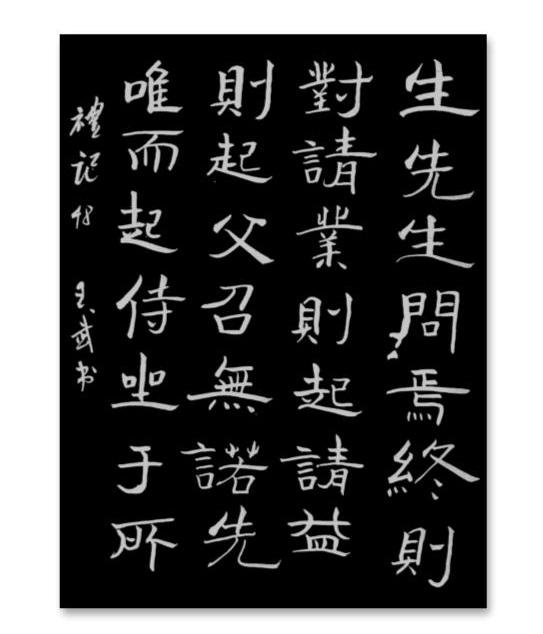 生先生問焉終則
對請業則起請益
則起父召無諾先
唯而起侍坐于所
禮記 王武书